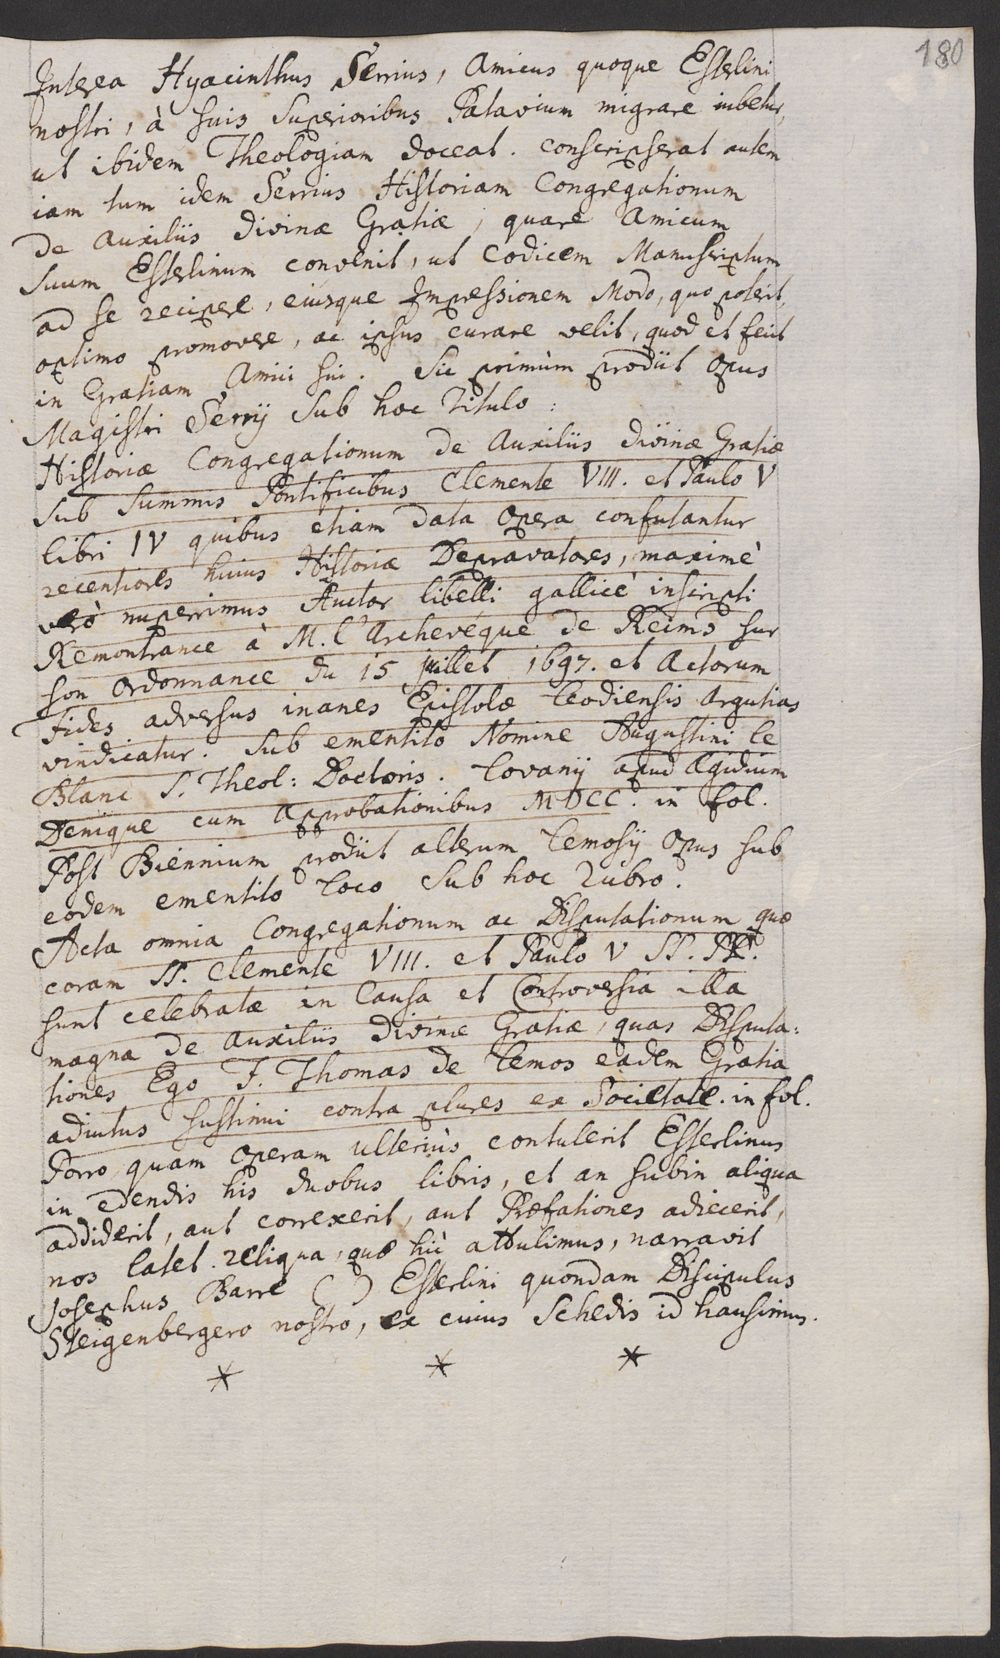 180
Interea Hyacinthus Serrius, Amicus quoque Esterlini
nostri, à suis Superioribus Patavium migrare iubetur,
ut ibidem Theologiam doceat. conscripserat autem
iam tum idem Serrius Historiam Congregationum
De Auxiliis Divinæ Gratiæ, quare Amicum
suum Esterlinum convenit, ut codicem Manuscriptum
ad se recipere, eiusque Impressionem Modo, quo poterit,
optimo promovere, ac ipsus curare velit, quod et fecit
in Gratiam Amici sui. Sic primùm prodiit Opus
Magistri Serrij sub hoc Titulo:
Historiæ Congregationum de Auxiliis divinæ Gratiæ
sub summis Pontificibus Clemente VIII. et Paulo V
libri IV quibus etiam data Opera confutantur
recentiores huius Historiæ Depravatores, maximè
verò nuperrimus Auctor libelli gallicè inscripti
Remontrance à M. l'Archevéque de Reims sur
son Ordonnance du 15 juillet 1697. et Actorum
fides adversus inanes Epistolæ Leodiensis Argutias
vindicatur. sub ementito Nomine Augustini le
Blanc S. Theol: Doctoris. Lovanij apud Ægidium
Denique cum Approbationibus MDCC. in fol.
Post Biennium prodiit alterum Lemosij Opus sub
eodem ementito Loco sub hoc Rubro.
Acta omnia Congregationum ac Disputationum quæ
coram SS. Clemente VIII. et Paulo V SS. PP.
sunt celebratæ in Causa et Controversia illa
magna de Auxiliis Divinæ Gratiæ, quas Disputa:
tiones Ego F. Thomas de Lemos eadem Gratia
adiutus sustinui contra plures ex Societate. in fol.
Porro quam Operam ulteriùs contulerit Esterlinus
in edendis his duobus libris, et an subin aliqua
addiderit, aut correxerit, aut Præfationes adiecerit,
nos latet. reliqua, quæ hìc attulimus, narravit
Josephus Barre ( ) Esterlini quondam Discipulus
Steigenbergero nostro, ex cuius Schedis id hausimus.
* * *